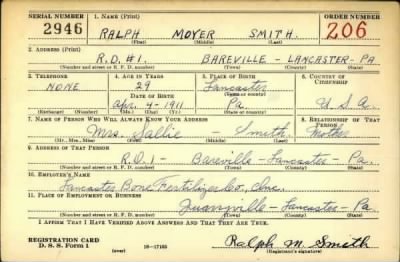 SERIAL NUMBER 1. NAME (Print) ORDER NUMBER
2946 RALPH MOYER SMITH. 206
(First) (Middle) (Last)
2. ADDRESS (Print)
R.D.#1. BAREVILLE - LANCASTER - PA
(Number and street or R. F. D. number) (Town) (County) (State)
3. TELEPHONE 4. AGE IN YEARS 5. PLACE OF BIRTH 6. COUNTRY OF CITIZENSHIP
NONE 29 Lancaster
DATE OF BIRTH (Town or county)
Apr. 4-1911 Pa U.S.A.
(Exchange) (Number) (Mo.) (Day) (Yr.) (State or country)
7. NAME OF PERSON WHO WILL ALWAYS KNOW YOUR ADDRESS 8. RELATIONSHIP OF THAT PERSON
Mrs. Sallie - Smith. Mother
(Mr., Mrs., Miss) (First) (Middle) (Last)
9. ADDRESS OF THAT PERSON
R.D.1 - Bareville - Lancaster - Pa.
(Number and street or R. F. D. number) (Town) (County) (State)
10. EMPLOYER'S NAME
Lancaster Bone Fertilizer Co, Inc.
11. PLACE OF EMPLOYMENT OR BUSINESS
Quarryville - Lancaster - Pa
(Number and street or R. F. D. number) (Town) (County) (State)
I AFFIRM THAT I HAVE VERIFIED ABOVE ANSWERS AND THAT THEY ARE TRUE.
REGISTRATION CARD
D. S. S. Form 1 (over) 16-17105 Ralph M. Smith
(Registrant's signature)